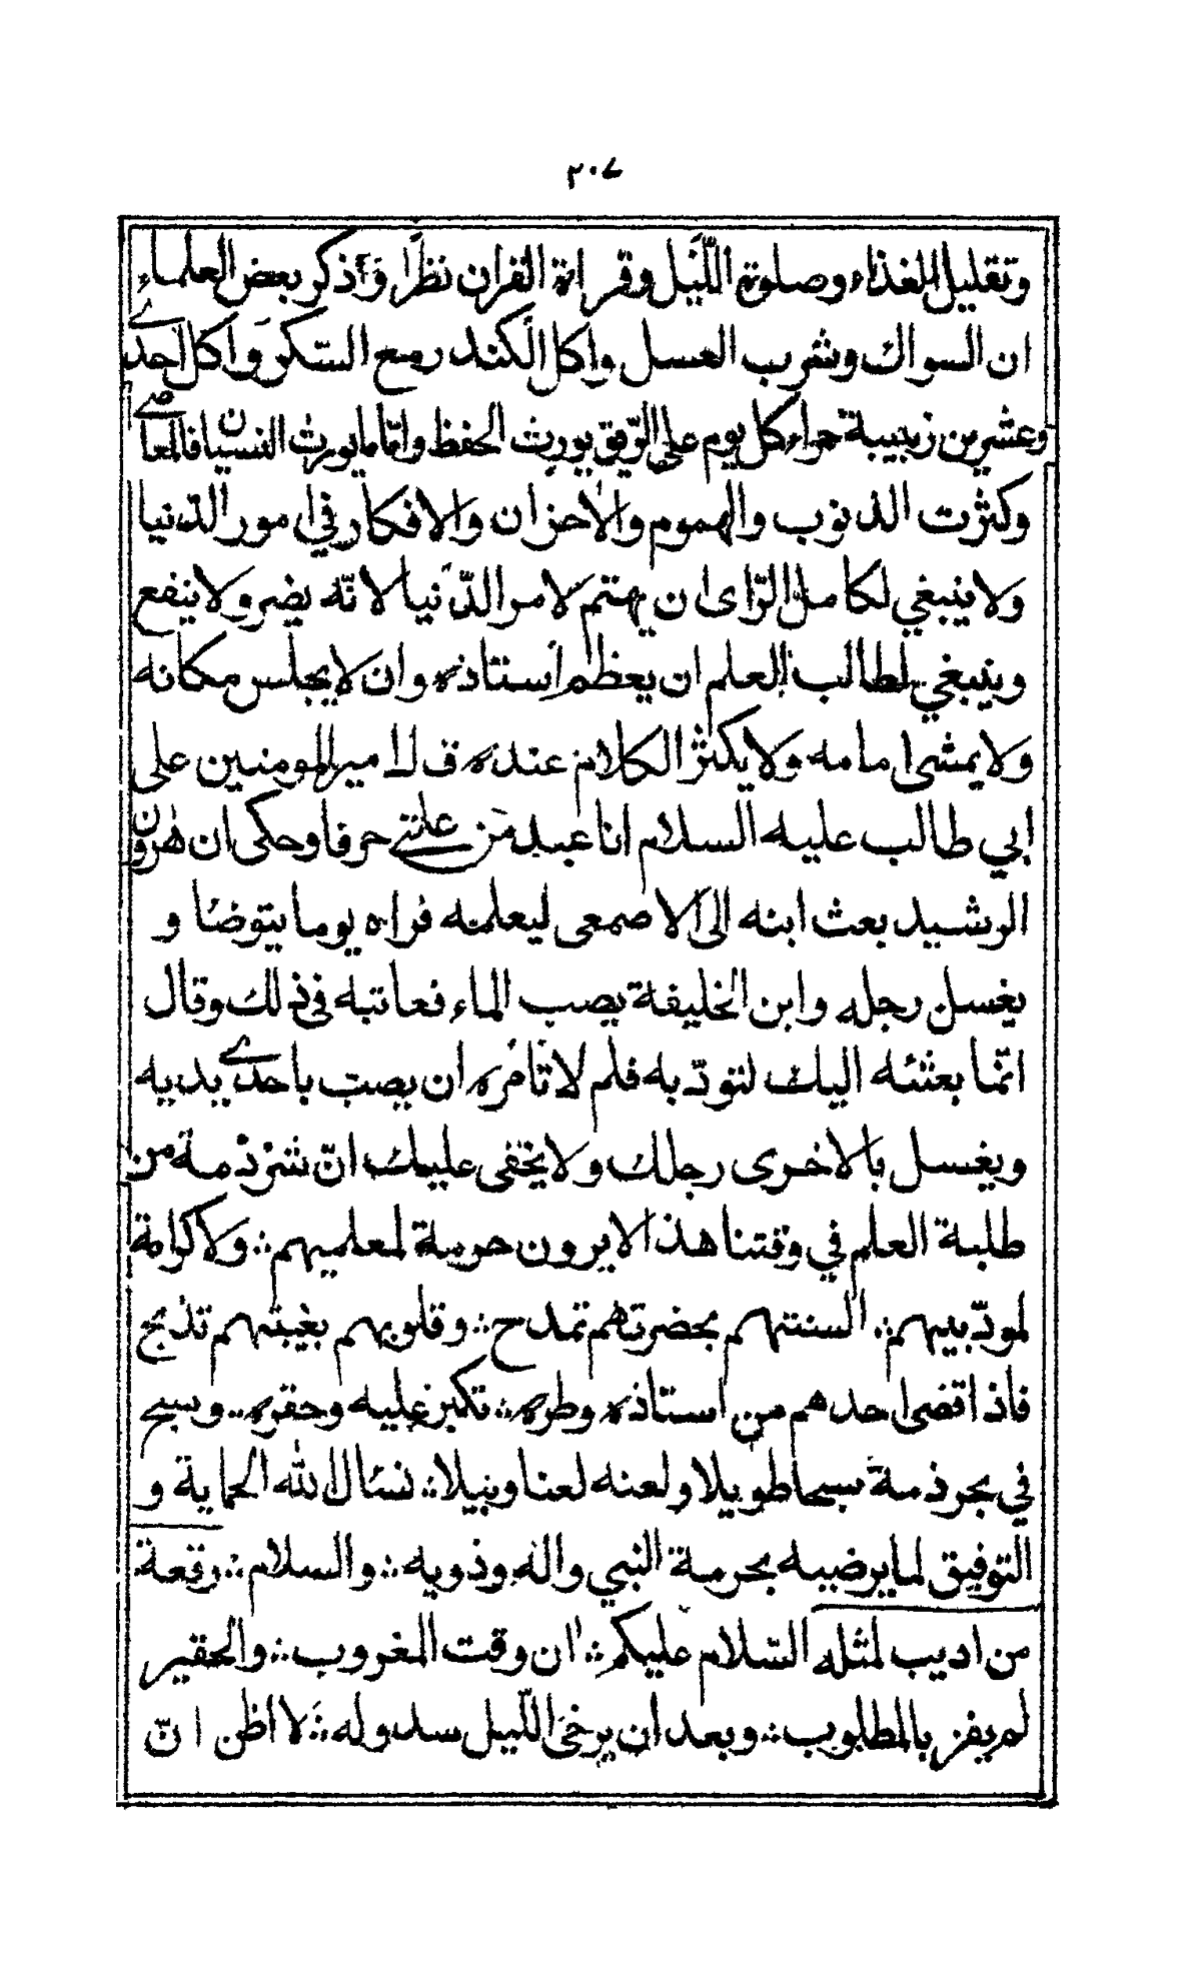 ٢٠٧
وتقليل الغذاء وصلوة اللَّيل وقراة القران نظرًا وَأذكر بعض العلماء
ان السواك وشرب العسل واكل الكندر مع السّكر وَاكل احدے
وعشرين زبيبة حمراء كل يوم على الرّيق يورث الحفظ وامّا ما يورث النسيان فالمعاصے
وكثرت الذنوب والهموم والاحزان والافكار في امور الدّنيا
ولا ينبغي لكامل الرّاى ان يهتم لامر الدّنيا لانّه يضر ولا ينفع
وينبغي لطالب العلم ان يعظم أستاذه وان لا يجلس مكانه
ولا يمشى امامه ولا يكثر الكلام عنده قال امير المومنين على
ابي طالب عليه السلام انا عبد مَن علمني حرفا وحكى ان هٰرون
الرشيد بعث ابنه الى الاصمعى ليعلمه فراه يوما يتوضا و
يغسل رجله وابن الخليفة يصب الماء فعاتبه في ذلك وقال
انّما بعثته اليك لتودّبه فلم لا تامُره ان يصب باحدے يديه
ويغسل بالاخرى رجلك ولا يخفى عليك انّ شرْذمة من
طلبة العلم في وقتنا هذا لا يرون حرمة لمعلميهم ∴ ولا كرامة
لمودّبيهم ∴ السنتهم بحضرتهم تمدح ∴ وقلوبهم بغيبتهم تذبح
فاذا قضى احدهم من استاذه وطره ∴ تكبر عليه وحقره ∴ وسبح
في بحر ذمه سبحا طويلا ولعنه لعنا وبيلا ∴ نسأل الله الحماية و
التوفيق لما يرضيه بحرمة النبي واله وذويه ∴ والسلام ∴ رقعة
من اديب لمثله السّلام عليكم ∴ ان وقت المغروب ∴ والحقير
لم يفز بالمطلوب ∴ وبعد ان يرخى اللّيل سدوله ∴ لا اظن انّ